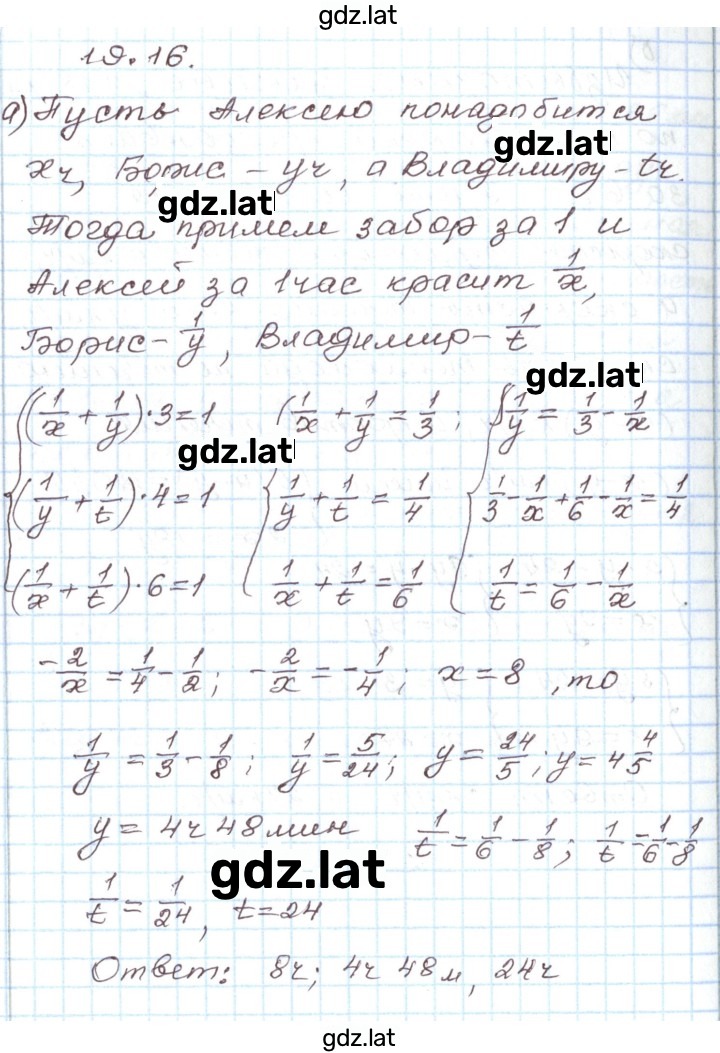 gdz.lat
19.16.
а) Пусть Алексею понадобится
gdz.lat
xч, Борис – yч, а Владимиру – tч.
gdz.lat
Тогда примем забор за 1 и
Алексей за 1час красит 1/x,
Борис – 1/y, Владимир – 1/t
gdz.lat
(1/x + 1/y)·3=1 1/x + 1/y = 1/3; 1/y = 1/3 - 1/x
gdz.lat
(1/y + 1/t)·4=1 1/y + 1/t = 1/4 1/3 - 1/x + 1/6 - 1/x = 1/4
(1/x + 1/t)·6=1 1/x + 1/t = 1/6 1/t = 1/6 - 1/x.
-2/x = 1/4 - 1/2; -2/x = -1/4; x = 8, то
1/y = 1/3 - 1/8; 1/y = 5/24; y = 24/5; y = 4 4/5
y = 4ч 48мин 1/t = 1/6 - 1/8; 1/t = 1/6 - 1/8
gdz.lat
1/t = 1/24, t = 24
Ответ: 8ч; 4ч 48м, 24ч
gdz.lat